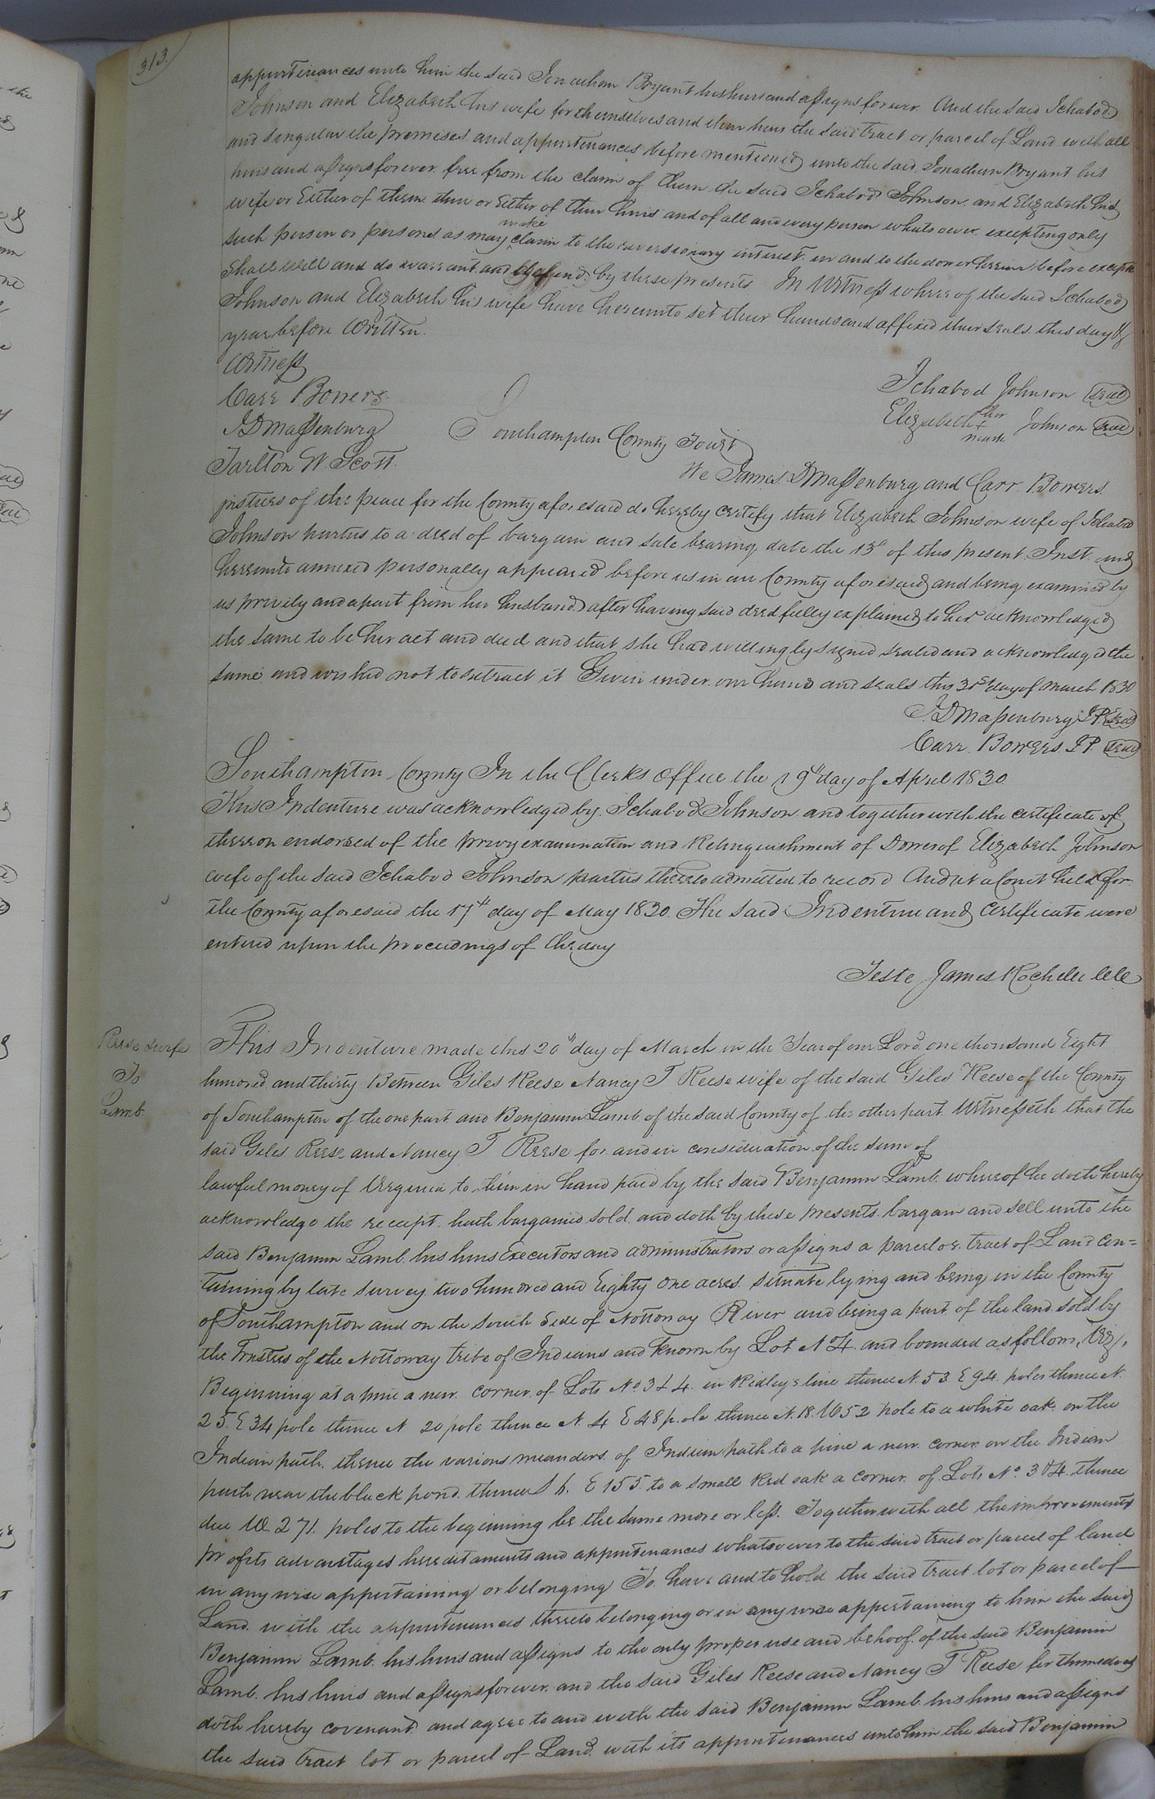 313.
appurtinances unto him the said Jonathan Bryant his heirs and assigns forever. And the said Ichabod
Johnson and Elizabeth his wife for themselves and their heirs the said tract or parcel of Land with all
and singular the premises and appurtenances before mentioned unto the said Jonathan Bryant his
heirs and assigns forever free from the claim of them the said Ichabod Johnson and Elizabeth his
wife or Either of them their or Either of their heirs and of all and every person whatsoever excepting only
such person or persons as may make claim to the reversionary interest in and to the dower herein before except
Shall will and do warrant and defend by these presents In Witness whereof the said Ichabod
Johnson and Elizabeth his wife have hereunto set their hands and affixed their seals this day &
year before Written.
Witness
Carr Bowers
J D Massenburg
Tarlton W Scott
Ichabod Johnson (seal)
Elizabeth her + mark Johnson (seal)
Southampton County Court
We James D Massenburg and Carr Bowers
justices of the peace for the County aforesaid do hereby certify that Elizabeth Johnson wife of Ichabod
Johnson parties to a deed of bargain and sale bearing date the 13th of this present Inst. and
hereunto annexed personally appeared before us in our County aforesaid and being examined by
us privily and apart from her husband after having said deed fully explained to her acknowledged
the same to be her act and deed and that she had willingly signed sealed and acknowledged the
same and wished not to retract it Given under our hand and seals this 31st day of March 1830
J. D Massenburg J.P. (seal)
Carr Bowers J P (seal)
Southampton County In the Clerks Office the 19th day of April 1830
This Indenture was acknowledged by Ichabod Johnson and together with the certificate of
thereon endorsed of the privy examination and Relinquishment of Dower of Elizabeth Johnson
wife of the said Ichabod Johnson parties thereto admitted to record And at a Court held for
the County aforesaid the 17th day of May 1830 The said Indenture and Certificate were
entered upon the proceedings of the day
Teste James Rochelle
Reese & wife
To
Lamb
This Indenture made this 20th day of March in the Year of our Lord one thousand Eight
hundred and thirty Between Giles Reese Nancy T Reese wife of the said Giles Reese of the County
of Southampton of the one part and Benjamin Lamb of the said County of the other part Witnesseth that the
said Giles Reese and Nancy T Reese for and in consideration of the sum of
lawful money of Virginia to him in hand paid by the said Benjamin Lamb. whereof he doth hereby
acknowledge the receipt. hath bargained sold and doth by these presents bargain and sell unto the
said Benjamin Lamb his heirs Executors and administrators or assigns a parcel or tract of Land Con=
taining by late survey two hundred and Eighty one acres situate lying and being in the County
of Southampton and on the South Side of Nottoway River and being a part of the land sold by
the Trustees of the Nottoway tribe of Indians and known by Lot N 4 and bounded as follows, Viz,
Beginning at a pine a new corner of Lots No 3 & 4. in Ridleys line thence N. 53 E 94 poles thence N.
25 E 34 pole thence N 20 pole thence N. 4 E 48 pole thence N. 18. W 52 pole to a white oak on the
Indian path. thence the various meanders of Indian path to a pine a new corner on the Indian
path near the black pond thence E 155 to a small Red oak a corner of Lots No. 3 & 4 thence
due W 271 poles to the beginning be the same more or less. Together with all the improvements
profits advantages hereditaments and appurtenances whatsoever to the said tract or parcel of land
in any wise appertaining or belonging To have and to hold the said tract lot or parcel of
Land with the appurtenances thereto belonging or in any wise appertaining to him the said
Benjamin Lamb. his heirs and assigns to the only proper use and behoof of the said Benjamin
Lamb. his heirs and assigns forever. and the said Giles Reese and Nancy T Reese for themselves
doth hereby covenant and agree to and with the said Benjamin Lamb his heirs and assigns
the said tract lot or parcel of Land with its appurtenances unto him the said Benjamin